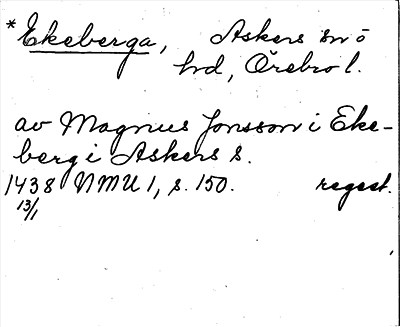 *Ekeberga, Askers sn ö
hd, Örebro l.
av Magnus Jonsson i Eke-
berg i Askers s.
1438 NMU 1, s. 150. regest.
13/1